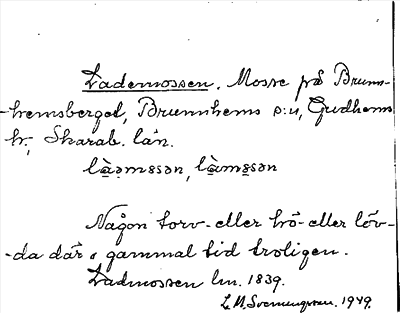 Lademossen. Mosse på Brunn-
-hemsberget, Brunnhems s:n, Gudhems
hr, Skarab. län.
Någon torv- eller hö- eller löv-
-da där i gammal tid troligen.
Ladmossen lm. 1839.
L.M. Svenungsson. 1949.